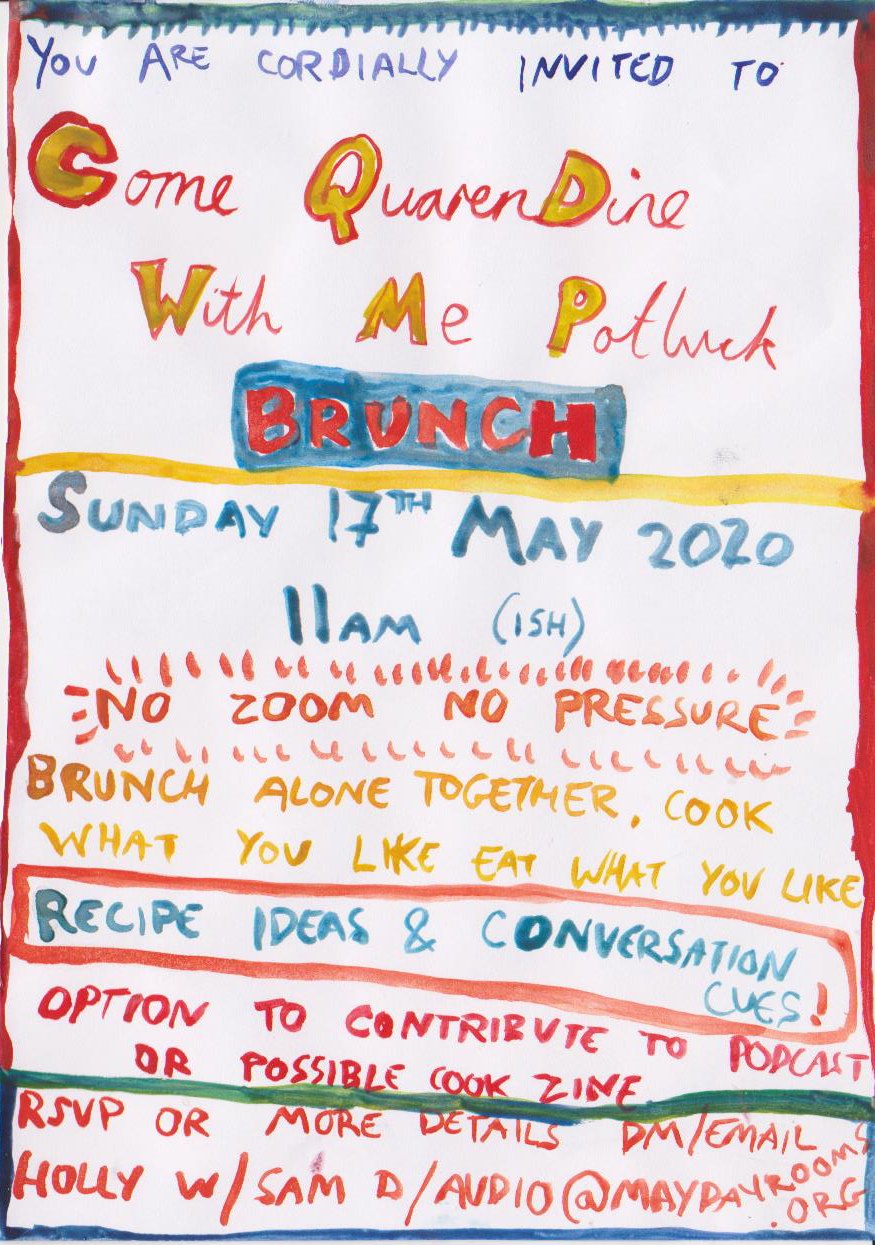 YOU ARE CORDIALLY INVITED TO
Come QuarenDine
With Me Potluck
BRUNCH
SUNDAY 17TH MAY 2020
11AM (ISH)
NO ZOOM NO PRESSURE
BRUNCH ALONE TOGETHER, COOK
WHAT YOU LIKE EAT WHAT YOU LIKE
RECIPE IDEAS & CONVERSATION
CUES!
OPTION TO CONTRIBUTE TO PODCAST
OR POSSIBLE COOK ZINE
RSVP OR MORE DETAILS DM/EMAIL
HOLLY W/SAM D/AUDIO@MAYDAYROOMS
.ORG